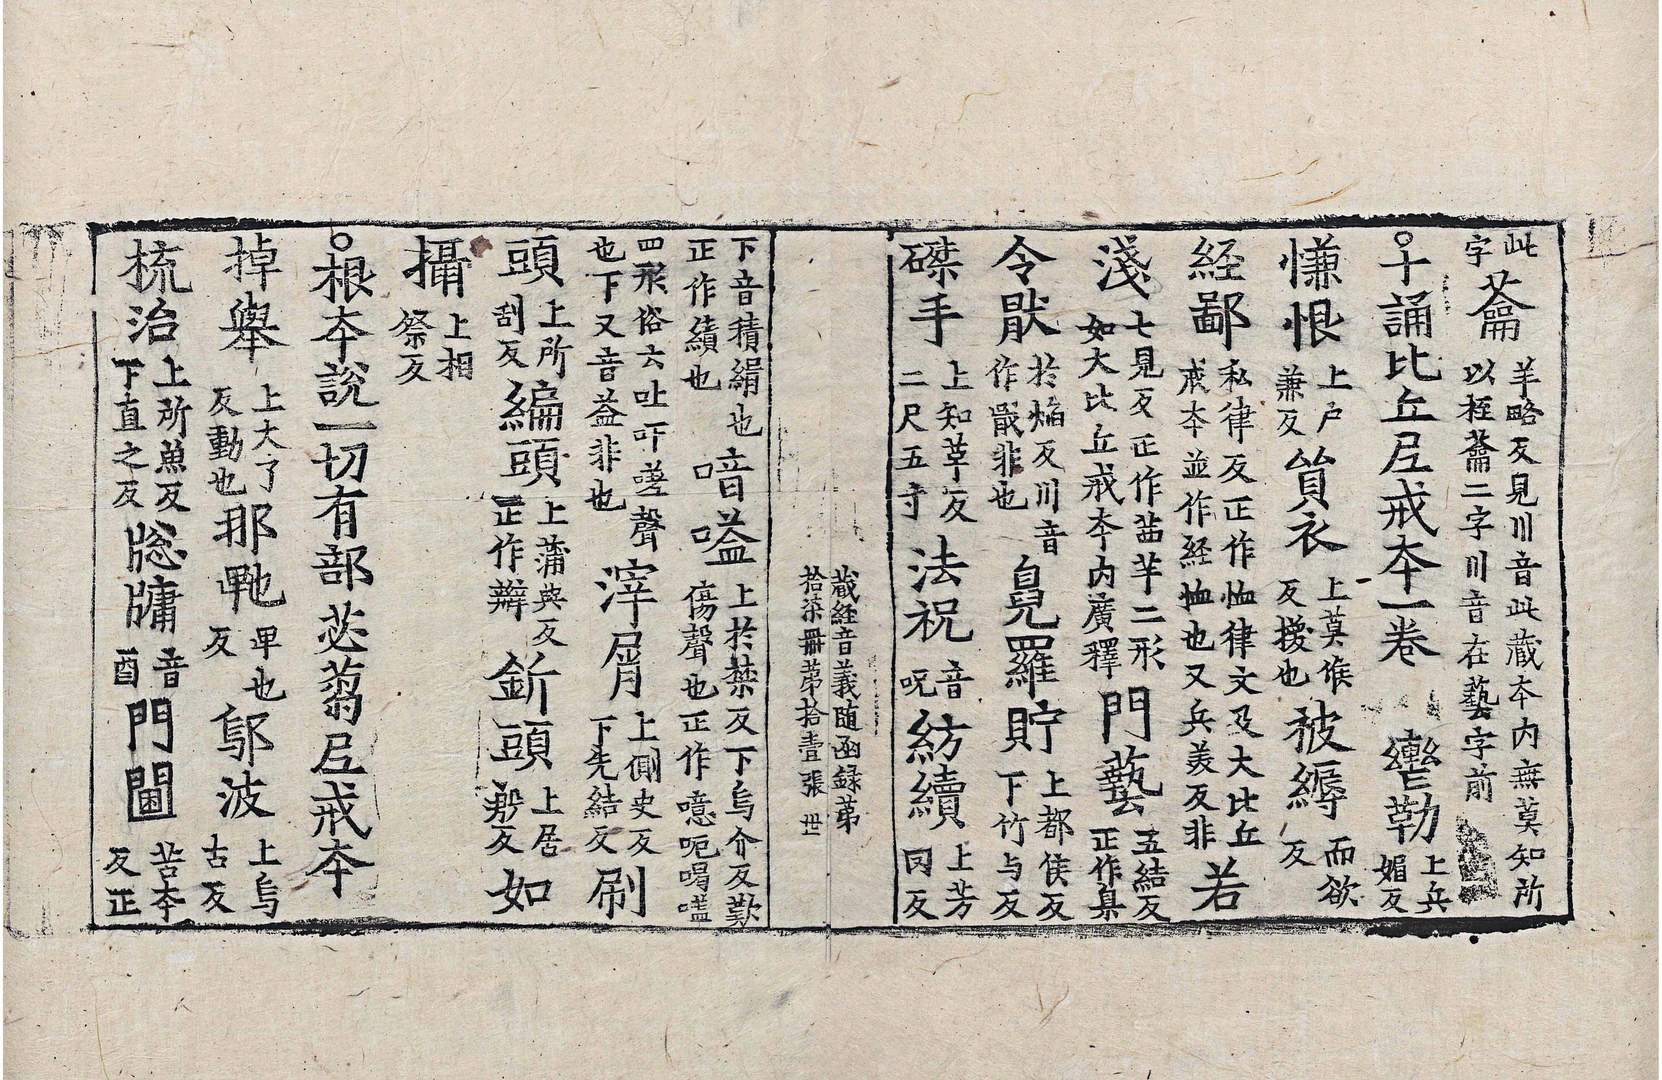 此字 蕍 羊略反見川音此藏本内無莫知所以桎蕍二字川音在藝字前
○十誦比丘尼戒本一卷 轡勒 上兵媚反
慊恨 上戸兼反 貿衣 上莫候反援也 被縟 而欲反
経鄙 私律反正作恤律文及大比丘戒本並作経恤也又兵美反非 若
淺 七見反正作茜芉二形如大比丘戒本内廣釋 門藝 五結反正作臬
令猒 於焔反川音作嚴非也 㲋羅 貯 上都侯反下竹与反
磔手 上知革反二尺五寸 法祝 音呪 紡續 上芳罔反
藏経音義随函録第拾柒冊第拾壹張 世
下音積緝也正作績也 喑嗌 上於禁反下烏介反歎傷聲也正作噫呃喝嗑
四形俗云吐吓嗟聲也下又音益非也 滓屑 上側史反下先結反 刷
頭 上所刮反 編頭 上蒲典反正作辮 釿頭 上居靳反 如
攝 上相祭反
○根本說一切有部苾蒭尼戒本
掉舉 上大了反動也 那 卑也反 鄔波 上烏古反
梳治 上所魚反下直之反 牕牖 音酉 門閫 苦本反正